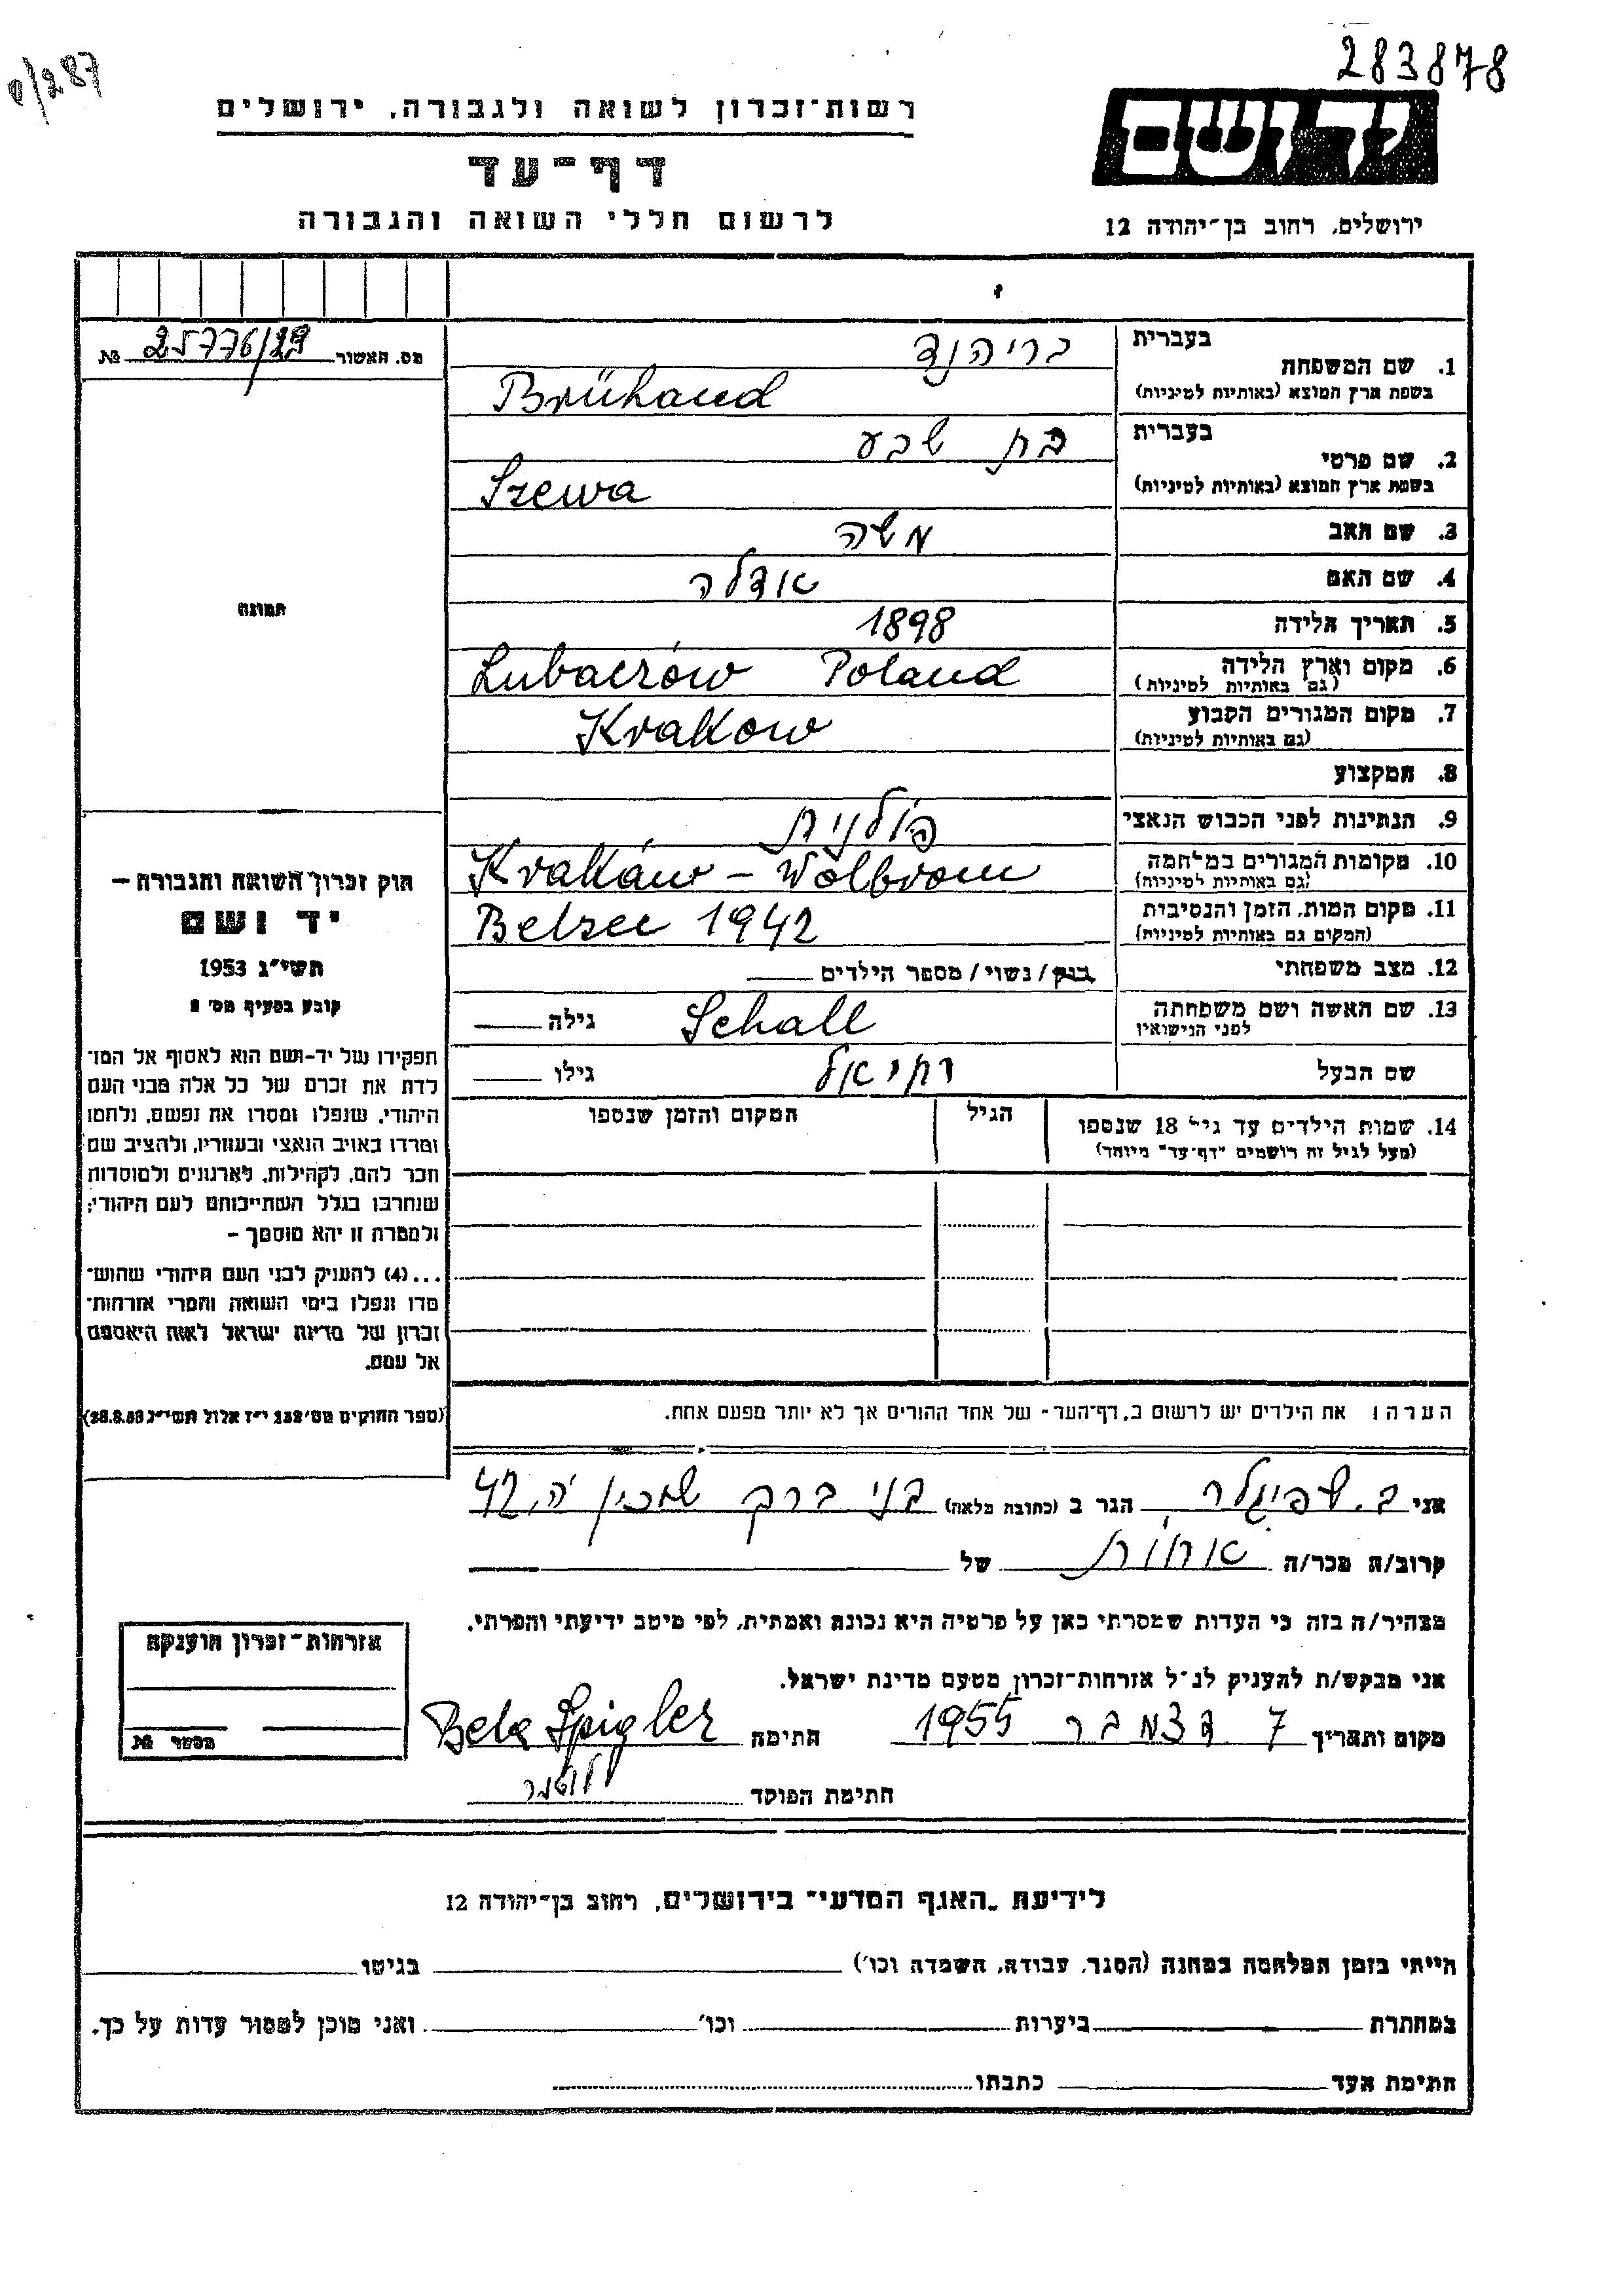 283878
0/287
רשות־זכרון לשואה ולגבורה, ירושלים
דף־עד
לרשום חללי השואה והגבורה
יד ושם
ירושלים, רחוב בן־יהודה 12
מס. האשור 25776/29 №
1. שם המשפחה
בעברית בריהנד
בשפת ארץ המוצא (באותיות לטיניות) Brühand
2. שם פרטי
בעברית בת שבע
בשפת ארץ המוצא (באותיות לטיניות) Szewa
3. שם האב משה
4. שם האם אדלה
5. תאריך הלידה 1898
6. מקום וארץ הלידה Lubaczów Poland
(גם באותיות לטיניות)
7. מקום המגורים הקבוע Krakow
(גם באותיות לטיניות)
8. המקצוע
9. הנתינות לפני הכבוש הנאצי פולנית
10. מקומות המגורים במלחמה Kraków – Wolbrom
(גם באותיות לטיניות)
11. מקום המות, הזמן והנסיבות Belzec 1942
(המקום גם באותיות לטיניות)
12. מצב משפחתי רווק / נשוי / מספר הילדים
13. שם האשה ושם משפחתה Schall גילה
לפני הנישואין
שם הבעל גילו
14. שמות הילדים עד גיל 18 שנספו הגיל המקום והזמן שנספו
(מעל לגיל זה רושמים "דף־עד" מיוחד)
הערה: את הילדים יש לרשום ב„דף־העד" של אחד ההורים אך לא יותר מפעם אחת.
תמונה
חוק זכרון השואה והגבורה –
יד ושם
תשי״ג 1953
קובע בסעיף מס׳ 2
תפקידו של יד-ושם הוא לאסוף אל המו־
לדת את זכרם של כל אלה מבני העם
היהודי, שנפלו ומסרו את נפשם, נלחמו
ומרדו באויב הנאצי ובעוזריו, ולהציב שם
וזכר להם, לקהילות, לארגונים ולמוסדות
שנחרבו בגלל השתייכותם לעם היהודי;
ולמטרה זו יהא מוסמך –
...(4) להעניק לבני העם היהודי שהוש־
מדו ונפלו בימי השואה והמרי אזרחות־
זכרון של מדינת ישראל לאות היאספם
אל עמם.
(ספר החוקים מס׳ 132 י״ז אלול תשי״ג 28.8.53)
אני ב. שפיגלר הגר ב (כתובת מלאה) בני ברק שכון ה׳, 42
קרוב/ה מכר/ה אחות של
מצהיר/ה בזה כי העדות שמסרתי כאן על פרטיה היא נכונה ואמתית, לפי מיטב ידיעתי והכרתי.
אני מבקש/ת להעניק לנ״ל אזרחות־זכרון מטעם מדינת ישראל.
מקום ותאריך 7 דצמבר 1955 חתימה Bela Spigler
חתימת הפוקד
אזרחות־זכרון הוענקה
מספר №
לידיעת „האגף המדעי" בירושלים, רחוב בן־יהודה 12
הייתי בזמן המלחמה במחנה (הסגר, עבודה, השמדה וכו׳) בגיטו
במחתרת ביערות וכו׳ ואני מוכן למסור עדות על כך.
חתימת העד כתבתו